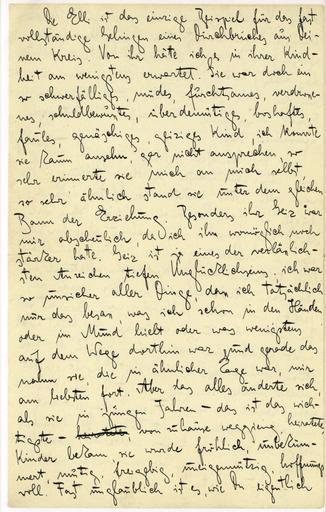 Die Elli ist das einzige Beispiel für das fast
vollständige Gelingen eines Durchbruches aus Dei-
nem Kreis. Von ihr hätte ich es in ihrer Kind-
heit am wenigsten erwartet. Sie war doch ein
so schwerfälliges, müdes, furchtsames, verdrosse-
nes, schuldbewusstes, überdemütiges, boshaftes,
faules, genäschiges, geiziges Kind ich konnte
sie kaum ansehn, gar nicht ansprechen so
sehr erinnerte sie mich an mich selbst,
so sehr ähnlich stand sie unter dem gleichen
Bann der Erziehung. Besonders ihr Geiz war
mir abscheulich, da ich ihn womöglich noch
stärker hatte. Geiz ist ja eines der verlässlich-
sten Anzeichen tiefen Unglücklichseins, ich war
so unsicher aller Dinge, dass ich tatsächlich
nur das besass was ich schon in den Händen
oder im Mund hielt oder was wenigstens
auf dem Wege dorthin war und gerade das
nahm sie, die in ähnlicher Lage war, mir
am liebsten fort. Aber das alles änderte sich
als sie in jungen Jahren – das ist das wich-
tigste – von zuhause weggieng, heiratete
Kinder bekam sie wurde fröhlich, unbeküm-
mert, mutig, freigebig, uneigennützig, hoffnungs-
voll. Fast unglaublich ist es, wie Du eigentlich